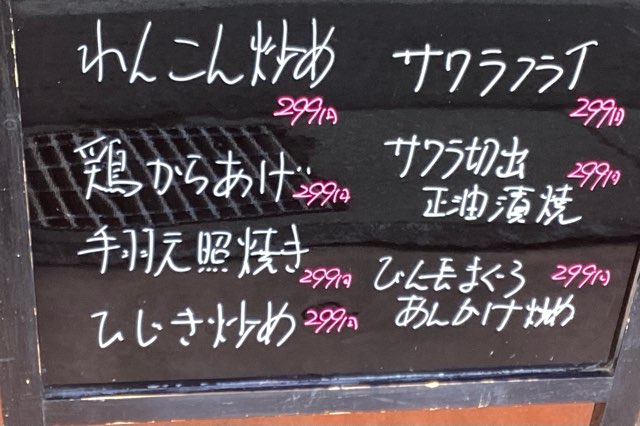 れんこん炒め
299円
鶏からあげ
299円
手羽元照焼き
299円
ひじき炒め 299円
サワラフライ
299円
サワラ切出 299円
正油漬焼
びん長まぐろ 299円
あんかけ炒め